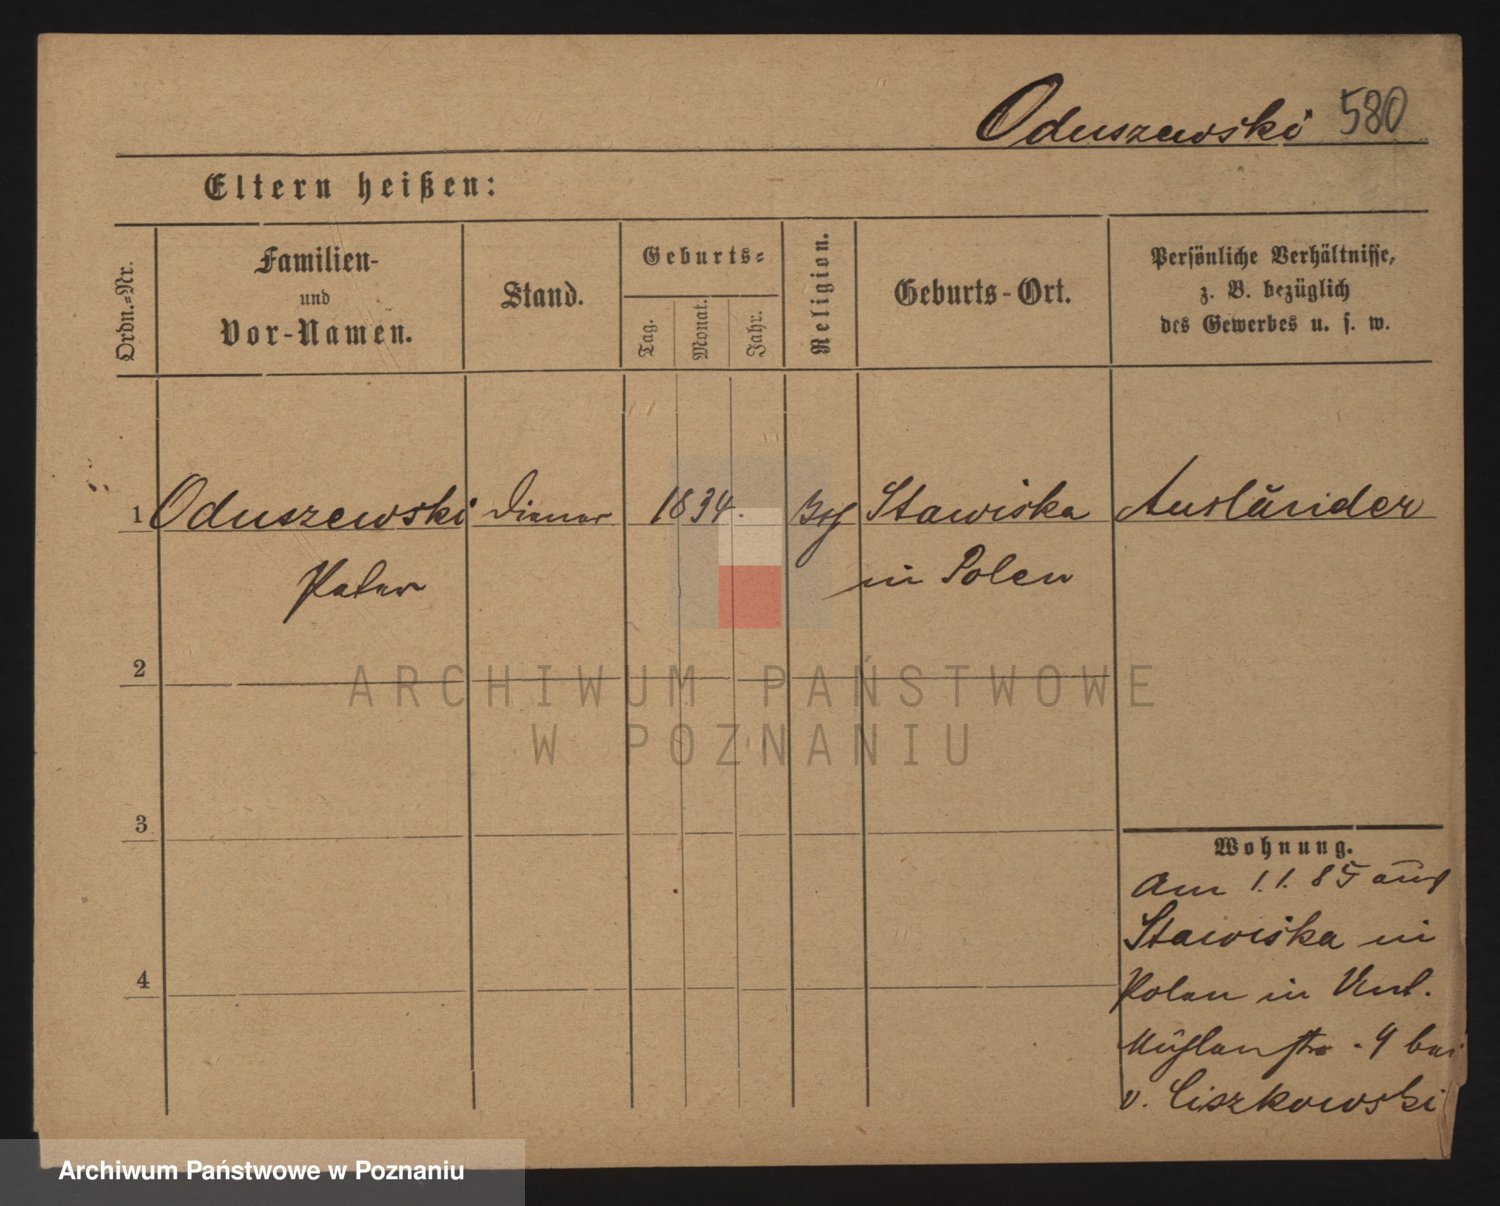 Oduszewski 580
Eltern heißen:
Ordn.=Nr.
Familien-
und
Vor-Namen.
Stand.
Geburts=
Tag.
Monat.
Jahr.
Religion.
Geburts-Ort.
Persönliche Verhältnisse,
z. B. bezüglich
des Gewerbes u. s. w.
1 Oduszewski Diener 1834. Stawiska Ausländer
Peter in Polen
2
3
4
Wohnung.
Am 1.1.85 aus
Stawiska in
Polen in
Mühlenstr. 9 bei
v. Ciszkowski
ARCHIWUM PAŃSTWOWE
W POZNANIU
Archiwum Państwowe w Poznaniu